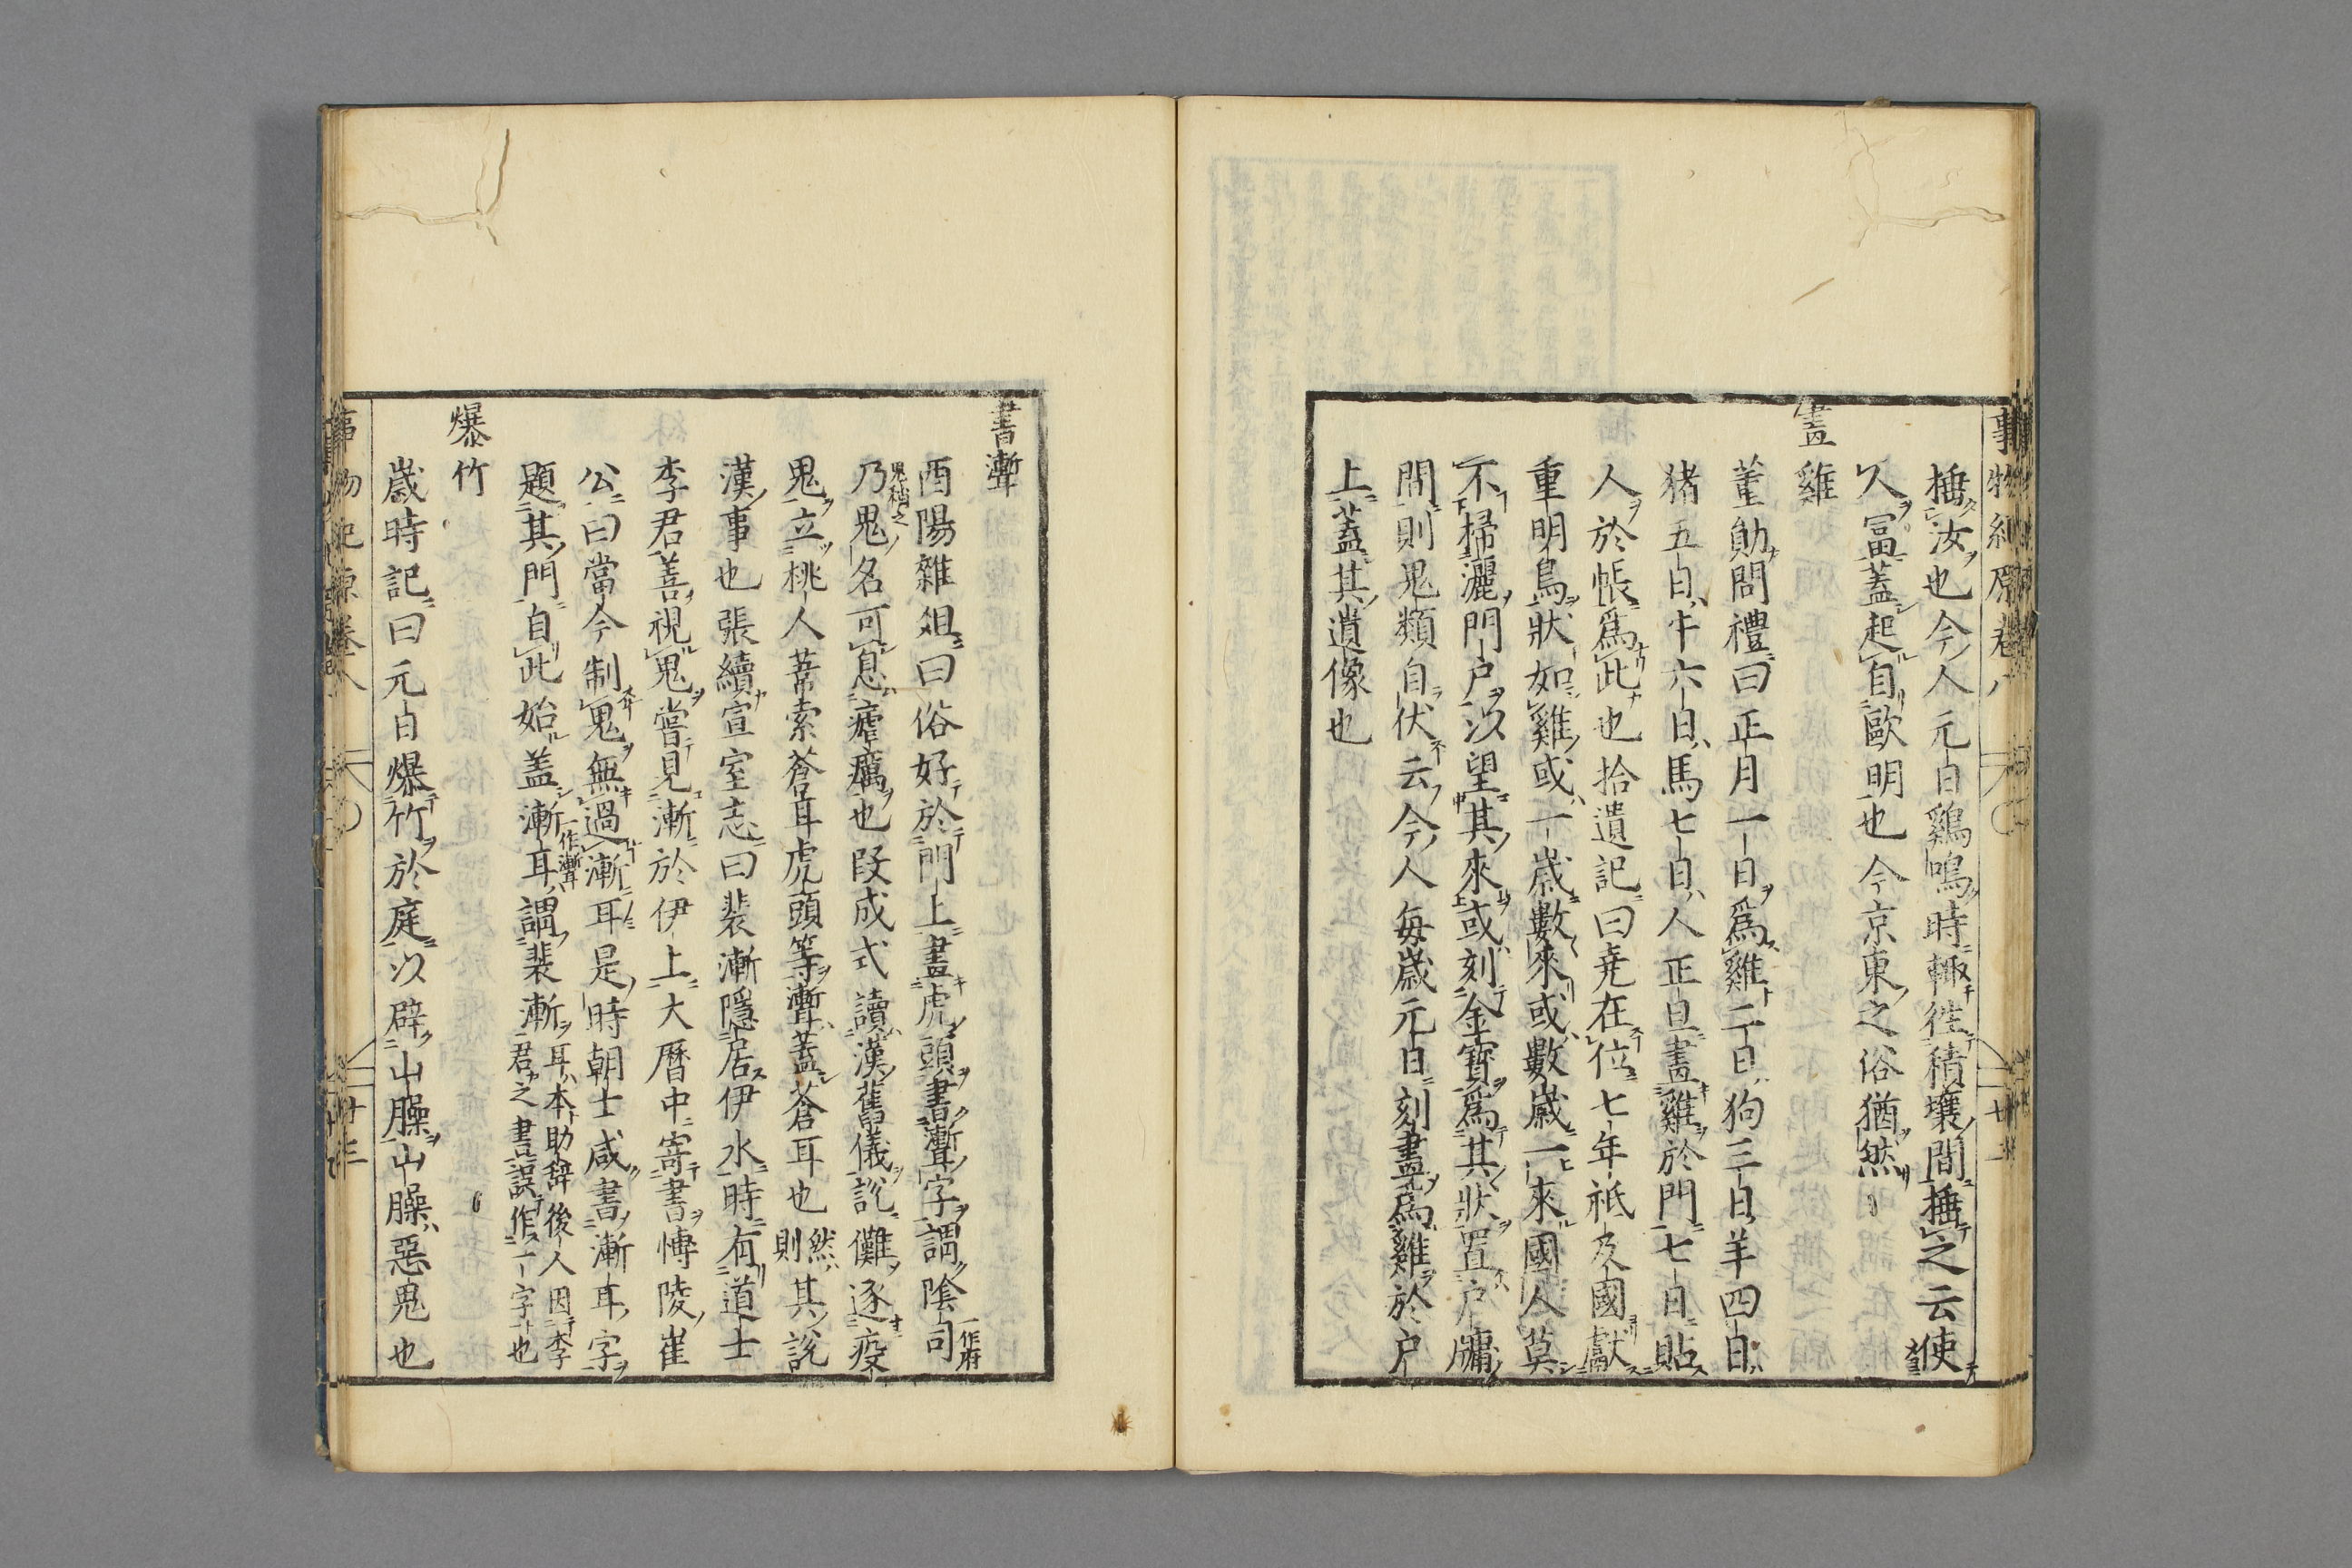 捶汝也今人元日鷄鳴時輙徃積壤間捶之云使
人冨蓋起自歐明也今京東之俗猶然
畫雞
董勛問禮曰正月一日爲雞二日狗三日羊四日
猪五日牛六日馬七日人正旦畫雞於門七日貼
人於帳爲此也拾遺記曰尭在位七年祗及國獻
重明鳥狀如雞或一歳數來或數歳一來國人莫
不掃灑門戸以望其來或刻金寳爲其狀置戸牖
間則鬼類自伏云今人毎歳元日刻畫爲雞於戸
上蓋其遺像也
書漸耳
酉陽雜俎曰俗好於門上畫虎頭書漸耳字謂隂司一作府
鬼稱之
乃鬼名可息瘧癘也段成式讀漢舊儀說儺逐疫
鬼立桃人葦索蒼耳虎頭等漸耳蓋蒼耳也然則其說
漢事也張續宣室志曰裴漸隱居伊水時有道士
李君善視鬼嘗見漸於伊上大曆中寄書愽陵崔
公曰當今制鬼無過漸耳是時朝士咸書漸耳字
題其門自此始蓋漸耳一作漸耳謂裴漸耳本助辞後人因李君之書誤作一字也
爆竹
歳時記曰元日爆竹於庭以辟山臊山臊惡鬼也
事物紀原巻八